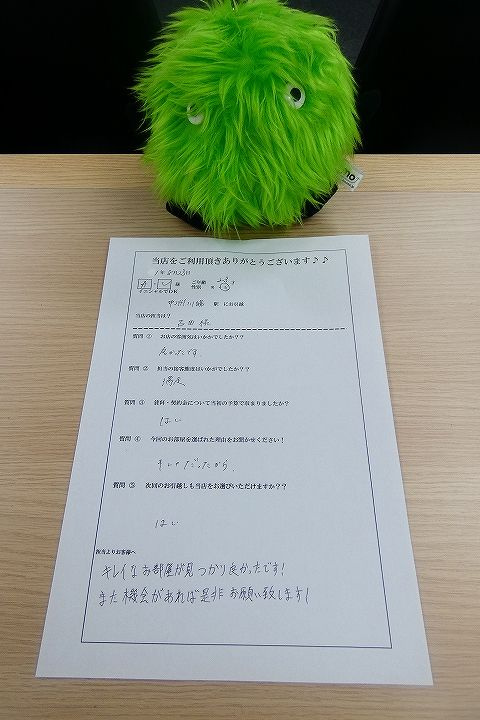 当店をご利用頂きありがとうございます♪♪
年8月23日
様 ご年齢
イニシャルでOK 性別
駅 にお引越
当店の担当は?
吉田 様
質問 ① お店の雰囲気はいかがでしたか??
良かったです
質問 ② 担当の接客態度はいかがでしたか??
満足
質問 ③ 賃料・契約金について当初の予算で収まりましたか?
はい
質問 ④ 今回のお部屋を選ばれた理由をお聞かせください!
キレイだったから
質問 ⑤ 次回のお引越しも当店をお選びいただけますか??
はい
担当よりお客様へ
キレイなお部屋が見つかり良かったです!
また機会があれば是非お願い致します!